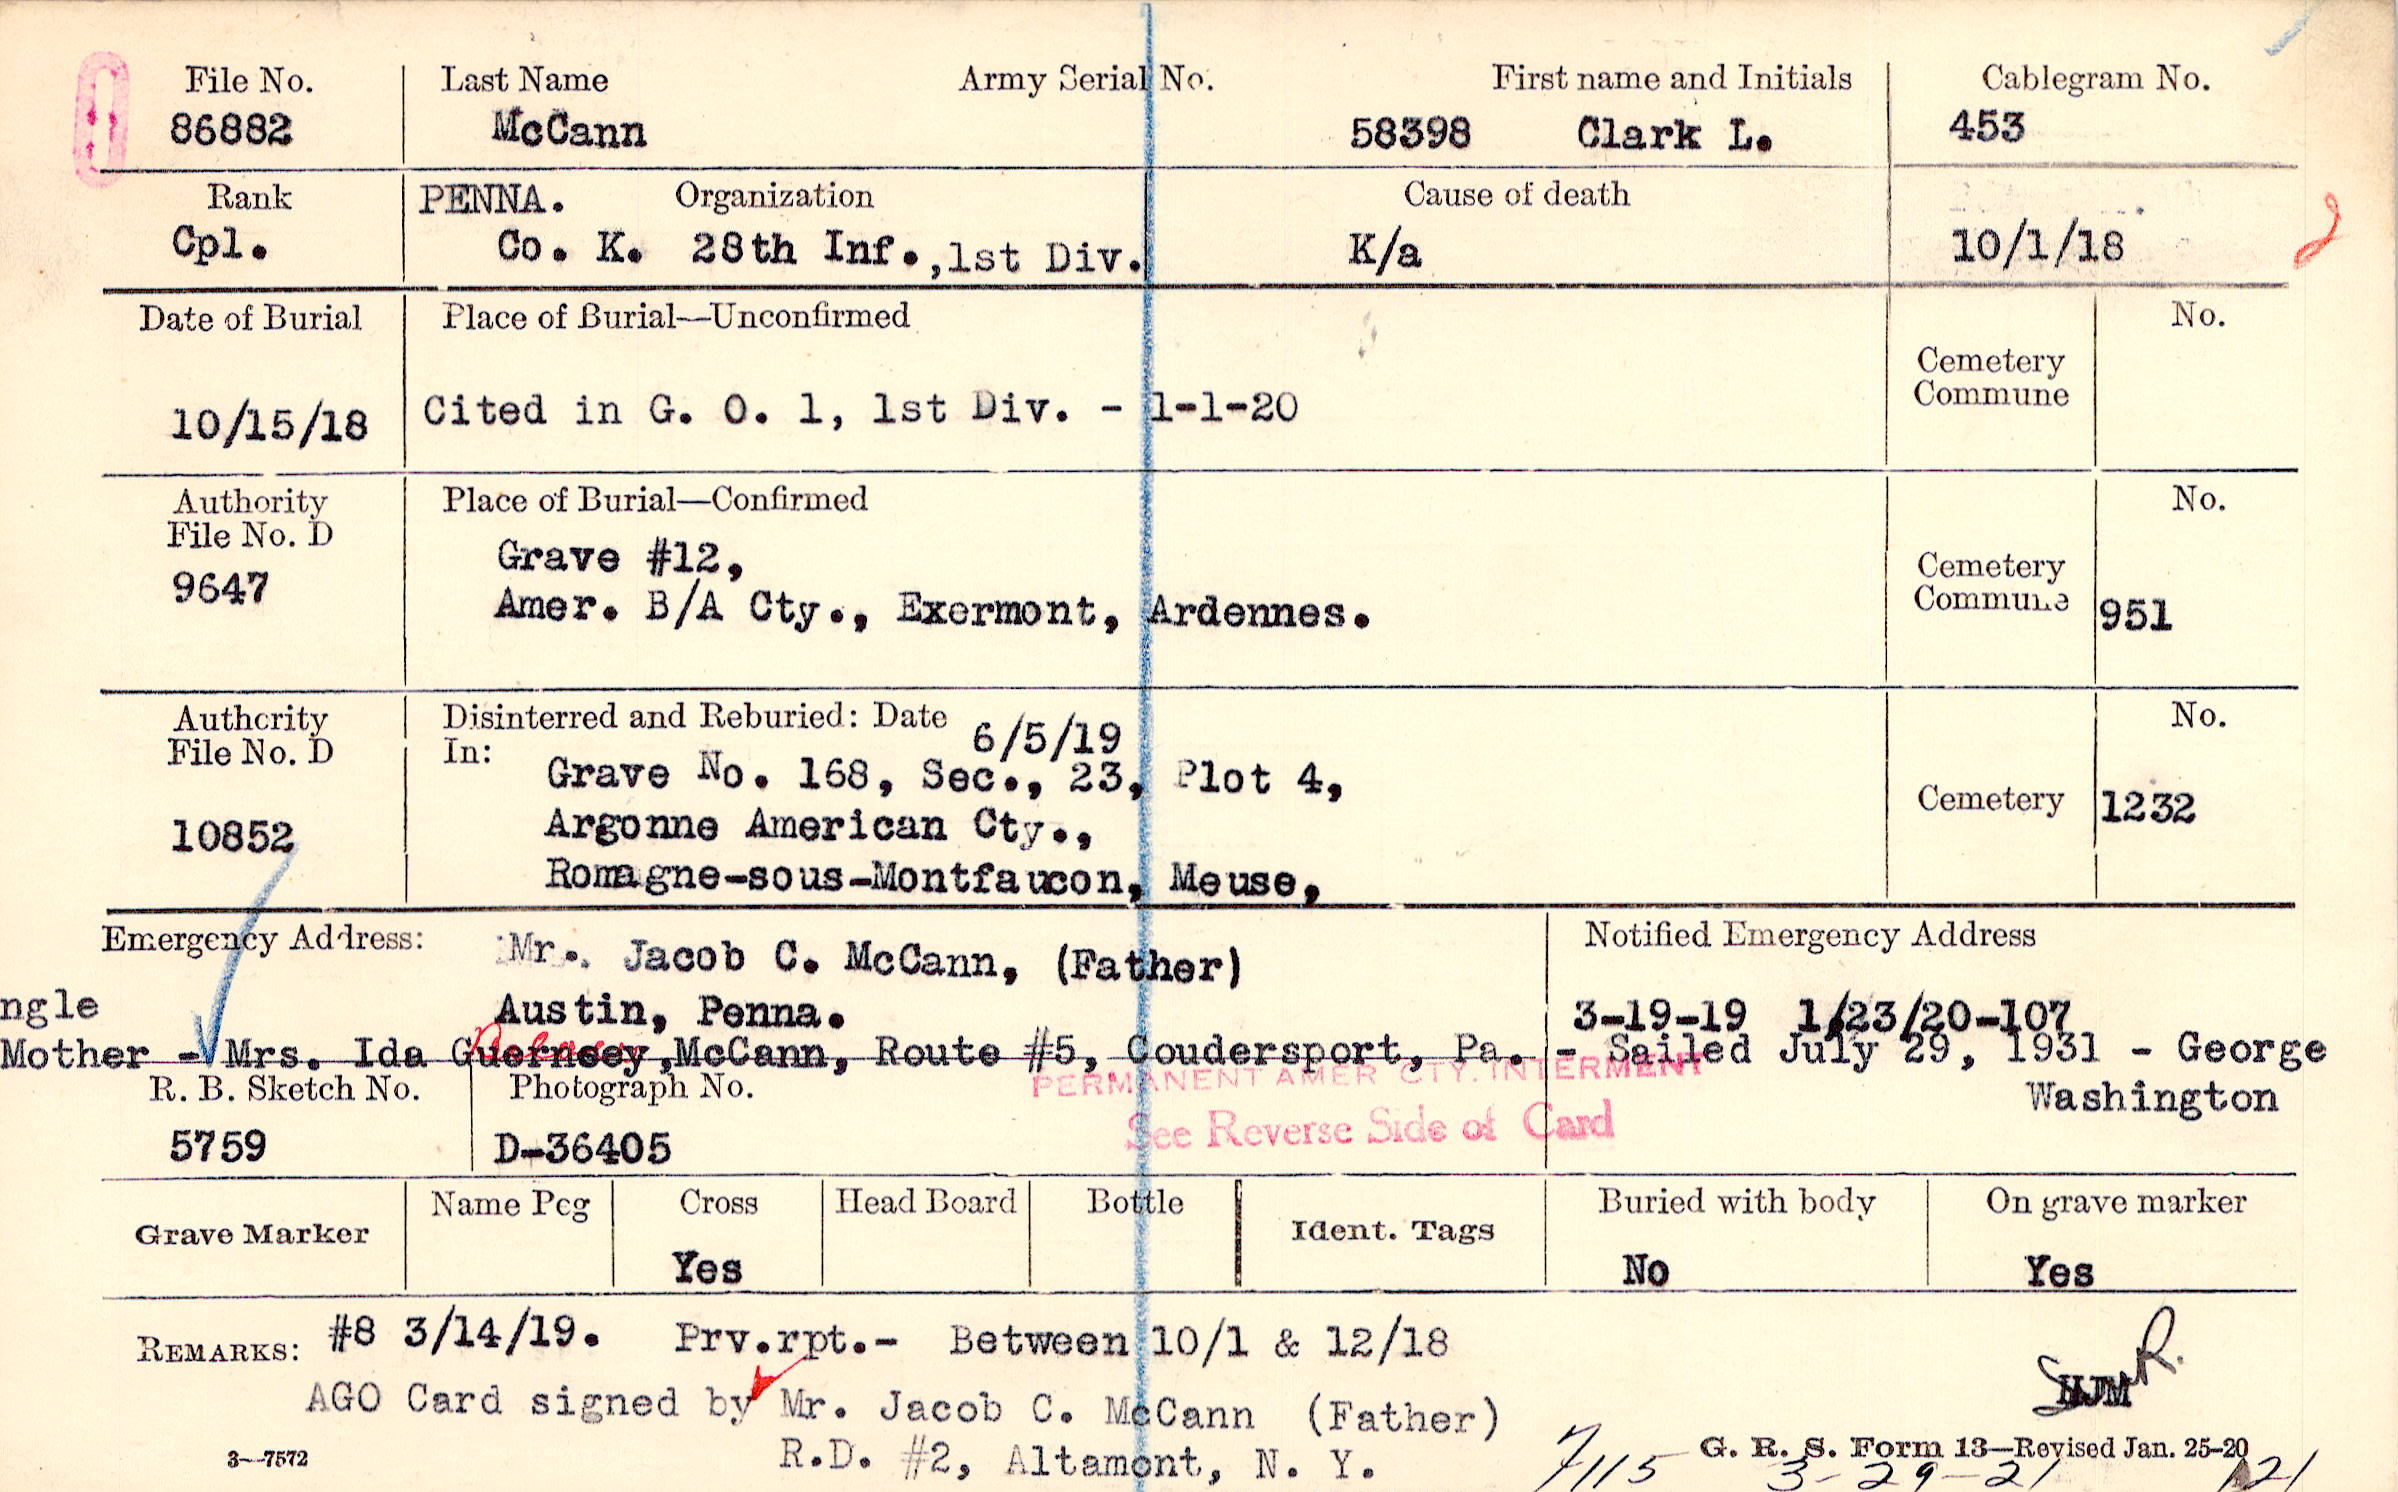 File No. Last Name Army Serial No. First name and Initials Cablegram No.
86882 McCann 58398 Clark L. 453
Rank PENNA. Organization Cause of death
Cpl. Co. K. 28th Inf.,1st Div. K/a 10/1/18
2
Date of Burial Place of Burial—Unconfirmed No.
Cemetery
Commune
10/15/18 Cited in G. O. 1, 1st Div. - 1-1-20
Authority Place of Burial—Confirmed No.
File No. D
9647 Grave #12,
Amer. B/A Cty., Exermont, Ardennes.
Cemetery
Commune 951
Authority Disinterred and Reburied: Date 6/5/19 No.
File No. D In:
Grave No. 168, Sec., 23, Plot 4,
10852 Argonne American Cty., Cemetery 1232
Romagne-sous-Montfaucon, Meuse,
Emergency Address: Mr. Jacob C. McCann, (Father) Notified Emergency Address
ngle Austin, Penna. 3-19-19 1/23/20-107
Mother - Mrs. Ida Guernsey,McCann, Route #5, Coudersport, Pa. - Sailed July 29, 1931 - George
Washington
R. B. Sketch No. Photograph No. PERMANENT AMER CTY. INTERMENT
5759 D-36405 See Reverse Side of Card
Grave Marker Name Peg Cross Head Board Bottle Ident. Tags Buried with body On grave marker
Yes No Yes
REMARKS: #8 3/14/19. Prv.rpt.- Between 10/1 & 12/18
R.
HJM
AGO Card signed by Mr. Jacob C. McCann (Father)
R.D. #2, Altamont, N. Y.
3—7572 7115 G. R. S. Form 13—Revised Jan. 25-20
3-29-21 121